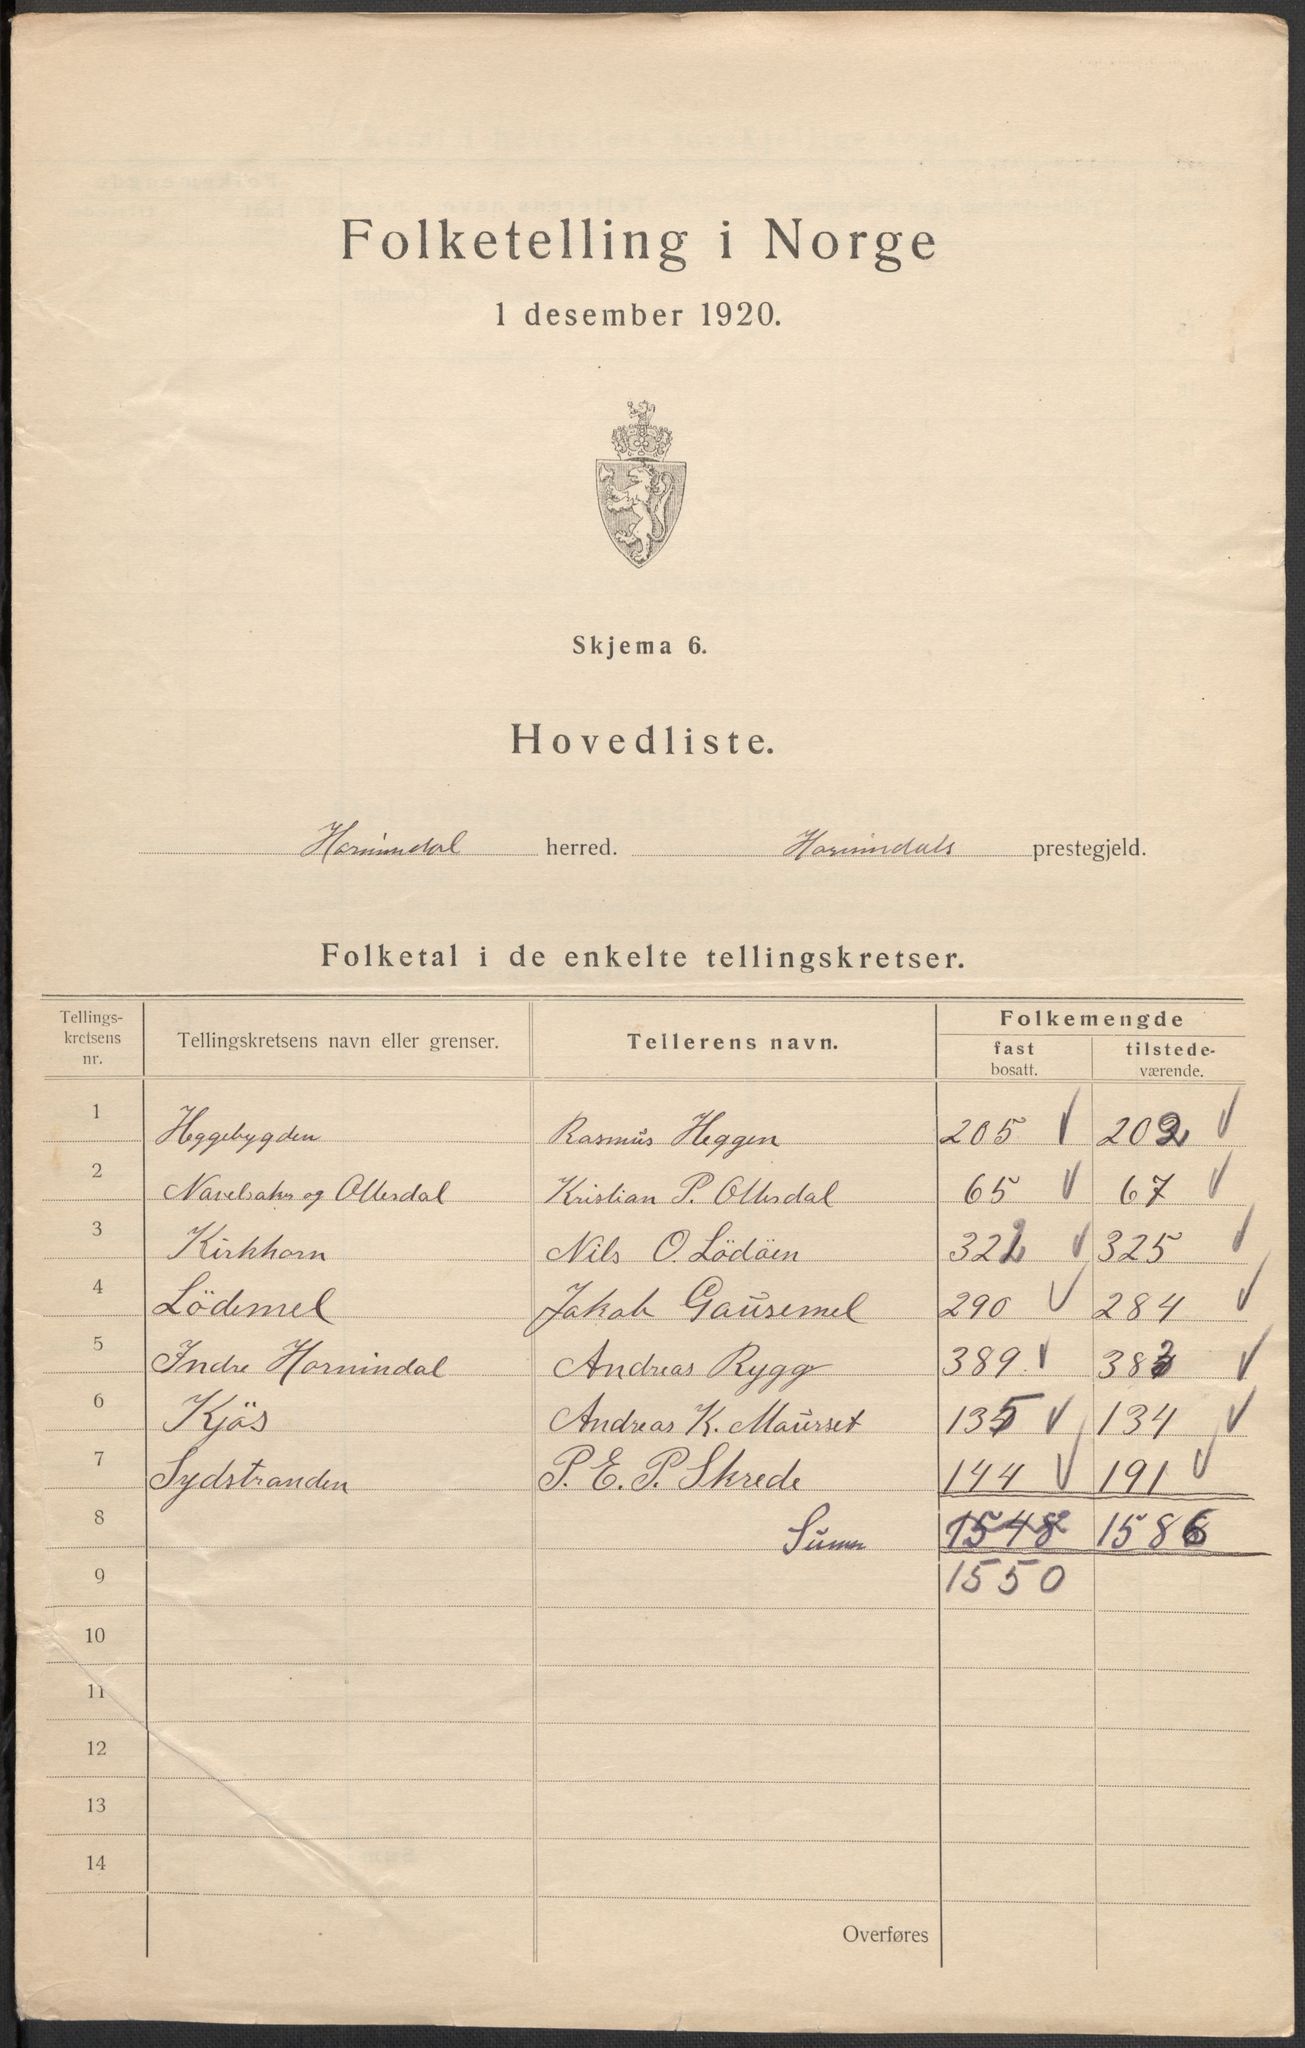 Folketelling i Norge
1 desember 1920.
Skjema 6.
Hovedliste.
Hornindal herred. Hornindals prestegjeld.
Folketal i de enkelte tellingskretser.
Tellings-kretsens nr. Tellingskretsens navn eller grenser. Tellerens navn. Folkemengde
fast bosatt. tilstede-værende.
1 Heggebygden Rasmus Heggen 205 202
2 Navelsaker og Ottesdal Kristian P. Ottesdal 65 67
3 Kirkhorn Nils O. Lödöen 322 325
4 Lödemel Jakob Gausemel 290 284
5 Indre Hornindal Andreas Rygg 389 383
6 Kjös Andreas K. Maurset 135 134
7 Sydstranden P. E. P. Skrede 144 191
8 Summ 1548 1586
9 1550
10
11
12
13
14
Overføres